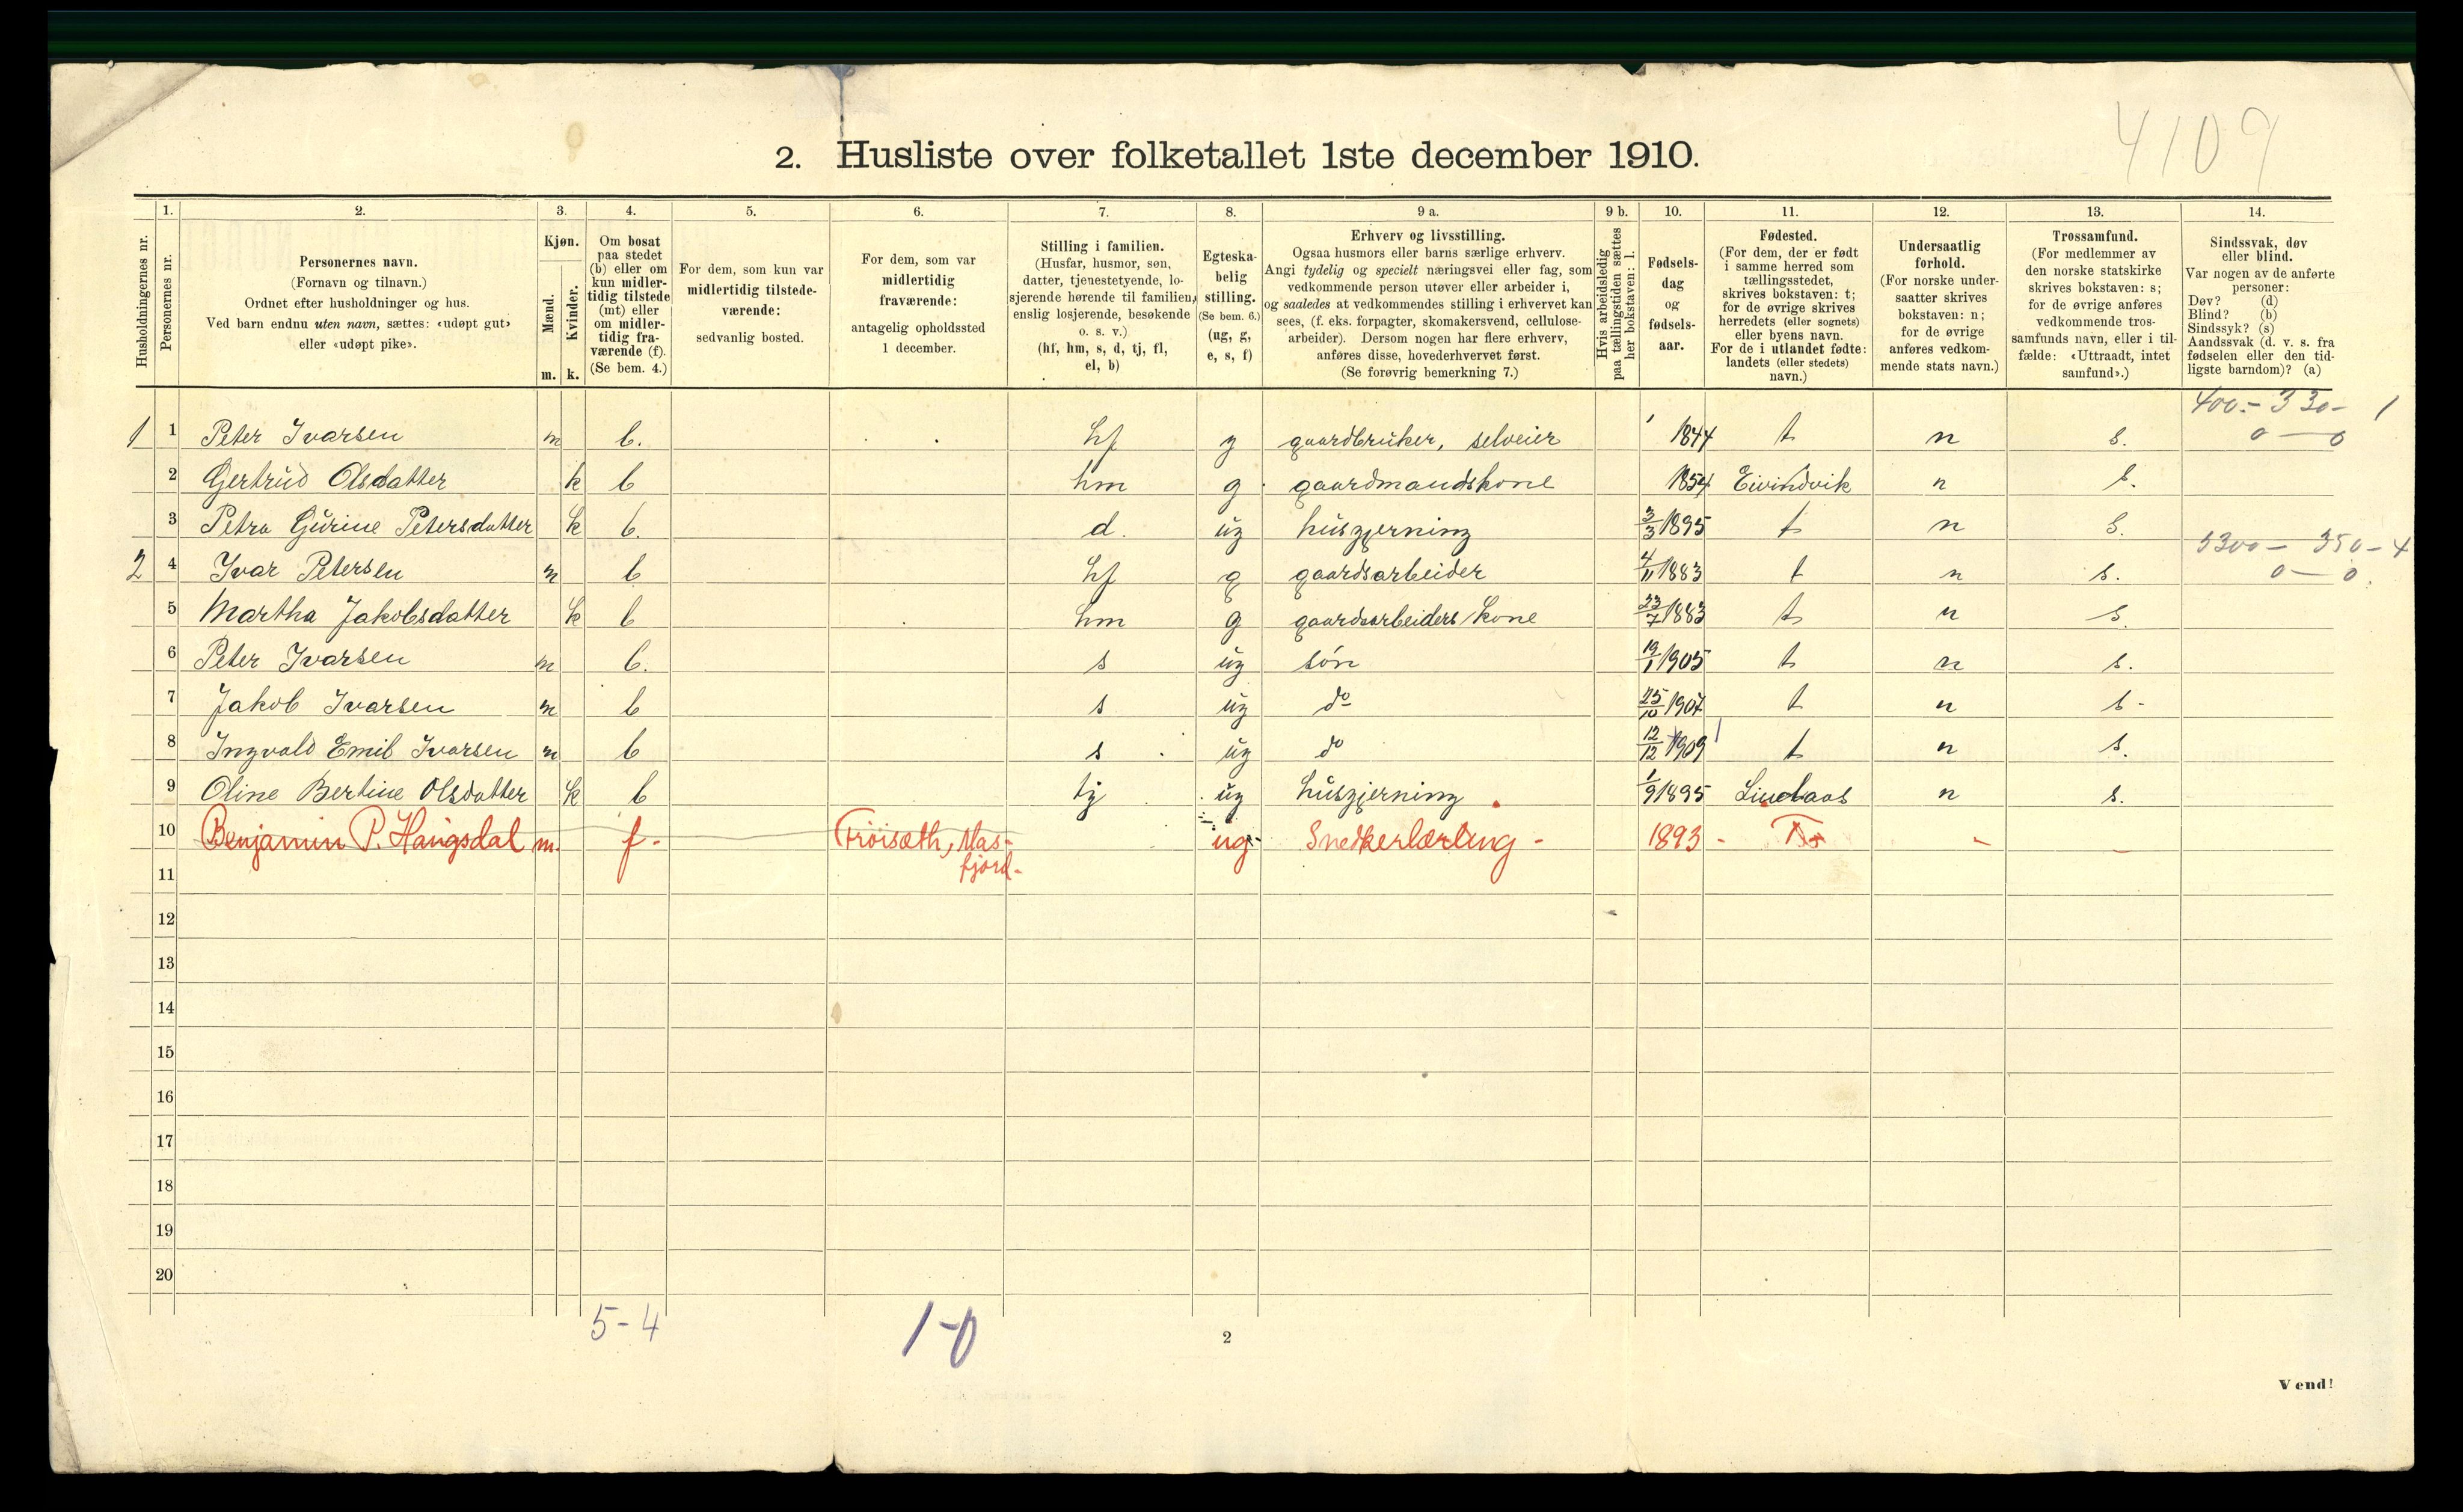 4109
2. Husliste over folketallet 1ste december 1910.
Husholdningernes nr.
1.
Personernes nr.
2.
Personernes navn.
(Fornavn og tilnavn.)
Ordnet efter husholdninger og hus.
Ved barn endnu uten navn, sættes: «udøpt gut»
eller «udøpt pike».
3.
Kjøn.
Mænd.
Kvinder.
m. k.
4.
Om bosat
paa stedet
(b) eller om
kun midler-
tidig tilstede
(mt) eller
om midler-
tidig fra-
værende (f).
(Se bem. 4.)
5.
For dem, som kun var
midlertidig tilstede-
værende:
sedvanlig bosted.
6.
For dem, som var
midlertidig
fraværende:
antagelig opholdssted
1 december.
7.
Stilling i familien.
(Husfar, husmor, søn,
datter, tjenestetyende, lo-
sjerende hørende til familien,
enslig losjerende, besøkende
o. s. v.)
(hf, hm, s, d, tj, fl,
el, b)
8.
Egteska-
belig
stilling.
(Se bem. 6.)
(ug, g,
e, s, f)
9 a.
Erhverv og livsstilling.
Ogsaa husmors eller barns særlige erhverv.
Angi tydelig og specielt næringsvei eller fag, som
vedkommende person utøver eller arbeider i,
og saaledes at vedkommendes stilling i erhvervet kan
sees, (f. eks. forpagter, skomakersvend, cellulose-
arbeider). Dersom nogen har flere erhverv,
anføres disse, hovederhvervet først.
(Se forøvrig bemerkning 7.)
9 b.
Hvis arbeidsledig
paa tællingstiden sættes
her bokstaven: l.
10.
Fødsels-
dag
og
fødsels-
aar.
11.
Fødested.
(For dem, der er født
i samme herred som
tællingsstedet,
skrives bokstaven: t;
for de øvrige skrives
herredets (eller sognets)
eller byens navn.
For de i utlandet fødte:
landets (eller stedets)
navn.)
12.
Undersaatlig
forhold.
(For norske under-
saatter skrives
bokstaven: n;
for de øvrige
anføres vedkom-
mende stats navn.)
13.
Trossamfund.
(For medlemmer av
den norske statskirke
skrives bokstaven: s;
for de øvrige anføres
vedkommende tros-
samfunds navn, eller i til-
fælde: «Uttraadt, intet
samfund».)
14.
Sindssvak, døv
eller blind.
Var nogen av de anførte
personer:
Døv? (d)
Blind? (b)
Sindssyk? (s)
Aandssvak (d. v. s. fra
fødselen eller den tid-
ligste barndom)? (a)
400.- 330- 1
1 1 Peter Ivarsen m b. hf g gaardbruker, selveier 1844 t n s. 0 — 0
2 Gertrud Olsdatter k b hm g gaardmandskone 1854 Eivindvik n s.
3 Petra Gurine Petersdatter k b. d. ug husgjerning 3/3 1895 t n s.
5300 - 350 - 4
2 4 Ivar Petersen m b hf g gaardsarbeider 4/11 1883 t n s. 0 — 0.
5 Martha Jakobsdatter k b hm g gaardsarbeiders kone 23/7 1883 t n s.
6 Peter Ivarsen m b. s ug søn 19/1 1905 t n s.
7 Jakob Ivarsen m b s ug do 25/10 1907 t n s-
8 Ingvald Emil Ivarsen m b s ug do 12/12 1909 t n s.
9 Oline Bertine Olsdatter k b tj ug husgjerning 1/9 1895 Lindaas n s.
10 Benjamin P. Haugsdal m. f- Frøisæth, Mas- ug- Snedkerlærling - 1893 - T -
fjord-
11
12
13
14
15
16
17
18
19
20
5-4
1-0
2
Vend!